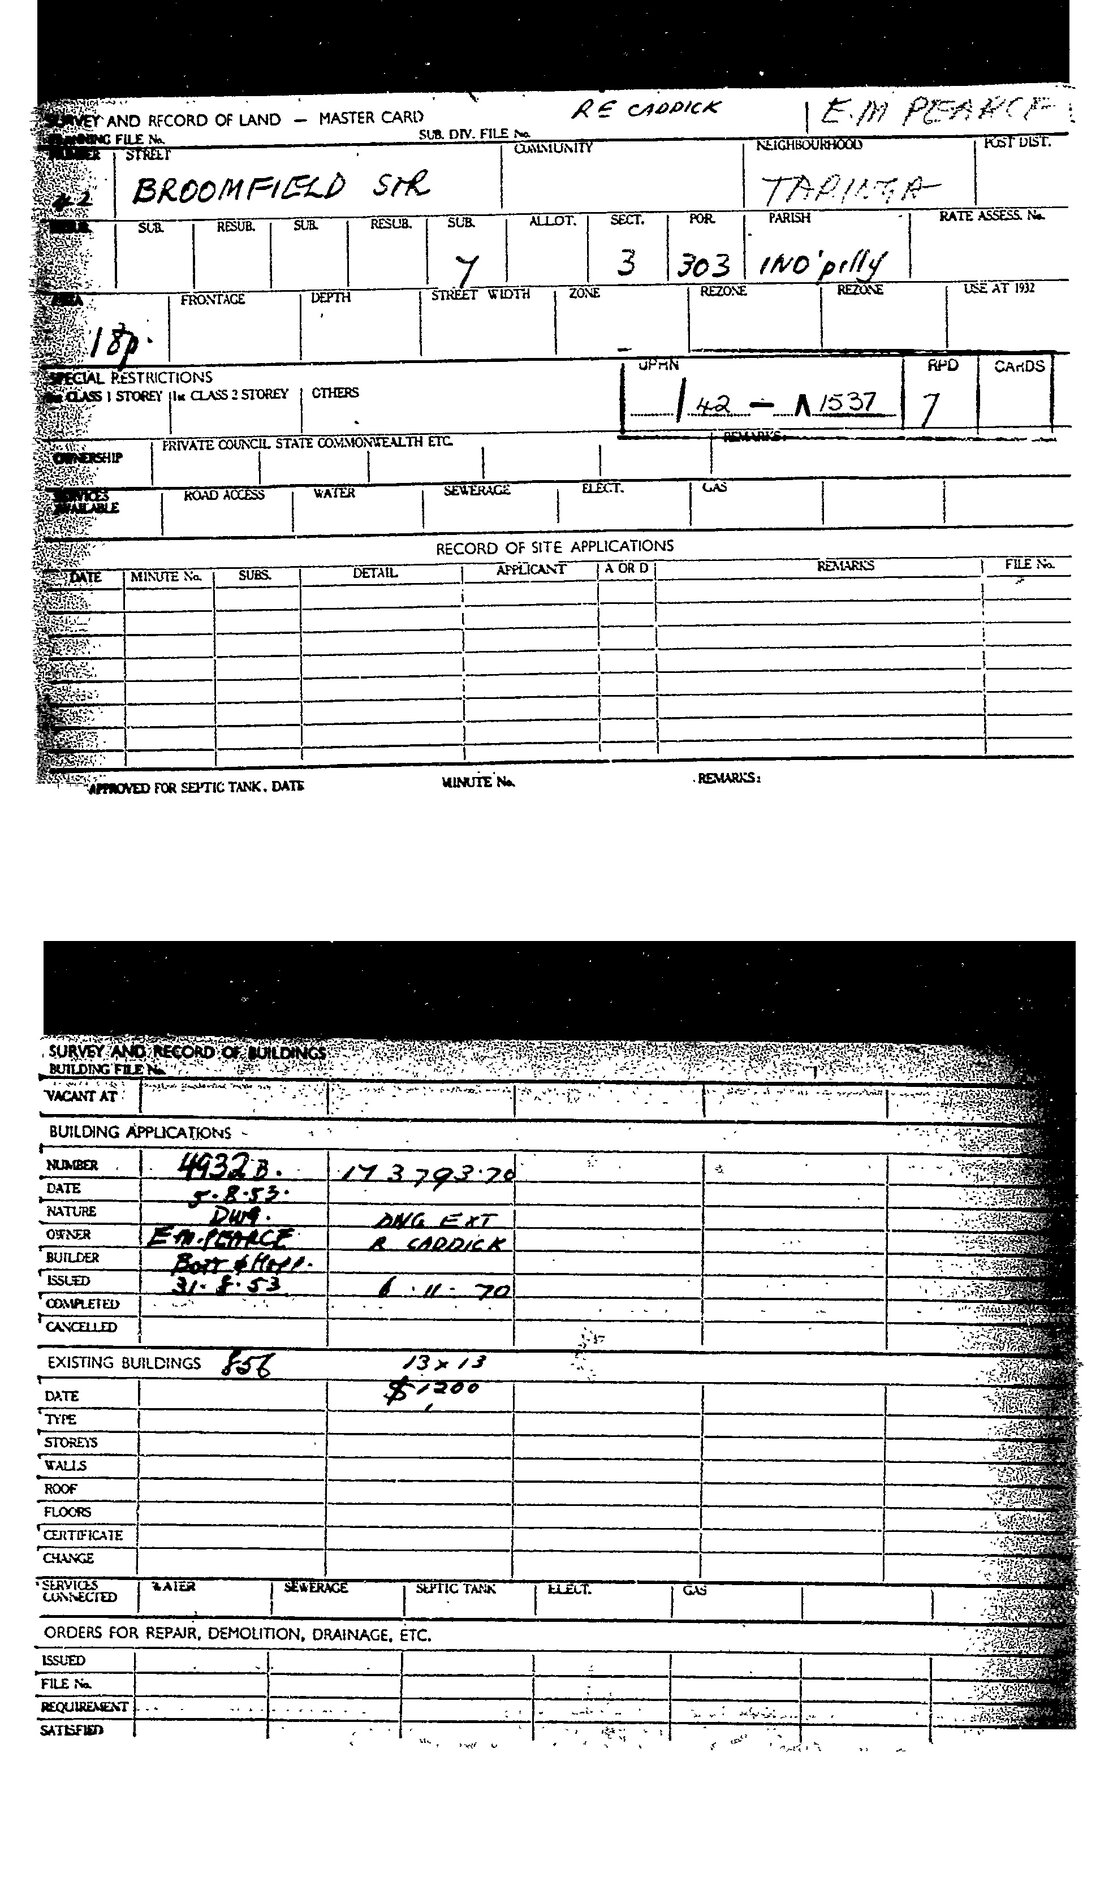 R E CADDICK E.M PEARCE
SURVEY AND RECORD OF LAND — MASTER CARD
PLANNING FILE No. SUB. DIV. FILE No.
NUMBER STREET COMMUNITY NEIGHBOURHOOD POST DIST.
BROOMFIELD STR TARINGA
SUB. RESUB. SUB. RESUB. SUB. ALLOT. SECT. POR. PARISH RATE ASSESS. No.
7 3 303 IND'pilly
AREA FRONTAGE DEPTH STREET WIDTH ZONE REZONE REZONE USE AT 1932
18p.
SPECIAL RESTRICTIONS UPRN RPD CARDS
CLASS 1 STOREY 1st CLASS 2 STOREY OTHERS
/42 — 1537 7
OWNERSHIP PRIVATE COUNCIL STATE COMMONWEALTH ETC. REMARKS:
SERVICES AVAILABLE ROAD ACCESS WATER SEWERAGE ELECT. GAS
RECORD OF SITE APPLICATIONS
DATE MINUTE No. SUBS. DETAIL APPLICANT A OR D REMARKS FILE No.
APPROVED FOR SEPTIC TANK. DATE MINUTE No. REMARKS:
SURVEY AND RECORD OF BUILDINGS
BUILDING FILE No.
VACANT AT
BUILDING APPLICATIONS
NUMBER 4932 B. 173793.70
DATE 5.8.53.
NATURE Dwg. DNG EXT
OWNER E M. PEARCE R CADDICK
BUILDER
ISSUED 31.8.53 6.11.70
COMPLETED
CANCELLED
EXISTING BUILDINGS 856 13 x 13
DATE $1200
TYPE
STOREYS
WALLS
ROOF
FLOORS
CERTIFICATE
CHANGE
SERVICES CONNECTED WATER SEWERAGE SEPTIC TANK ELECT. GAS
ORDERS FOR REPAIR, DEMOLITION, DRAINAGE, ETC.
ISSUED
FILE No.
REQUIREMENT
SATISFIED